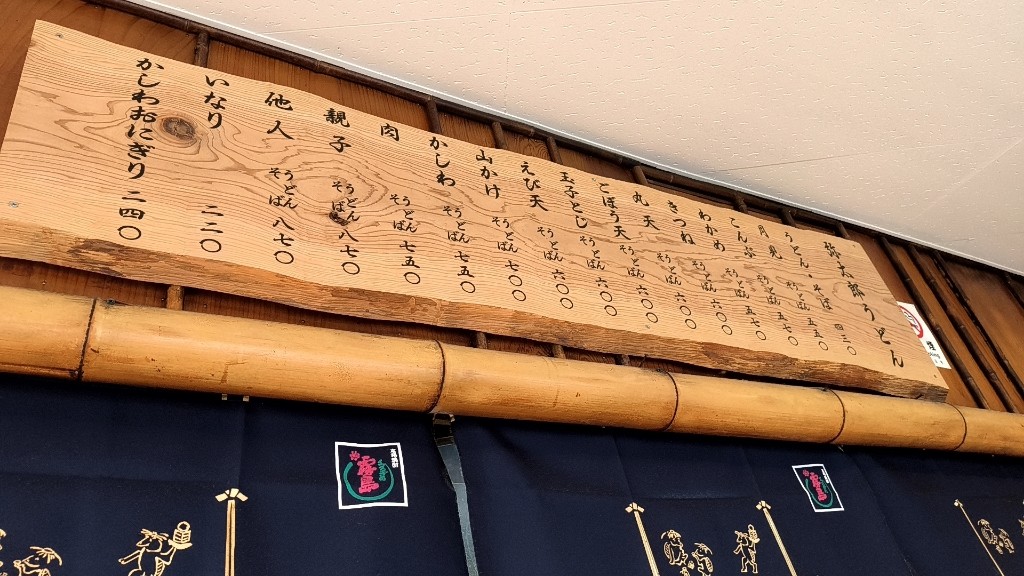 弥太郎うどん
うどん そば 四三〇
月見 うどん そば 五五〇
こんぶ うどん そば 五七〇
わかめ うどん そば 五七〇
きつね うどん そば 六〇〇
丸天 うどん そば 六〇〇
ごぼう天 うどん そば 六〇〇
玉子とじ うどん そば 六〇〇
えび天 うどん そば 六〇〇
山かけ うどん そば 七〇〇
かしわ うどん そば 七五〇
肉 うどん そば 七五〇
親子 うどん そば 八七〇
他人 うどん そば 八七〇
いなり 二二〇
かしわおにぎり 二四〇